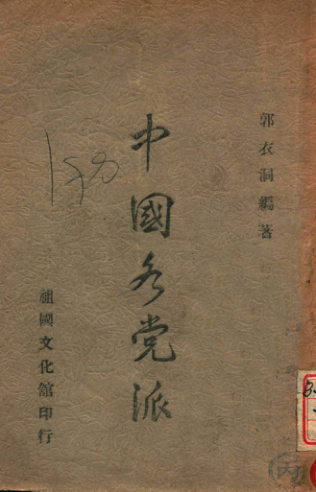 郭衣洞編著
中國各党派
祖國文化館印行
丙